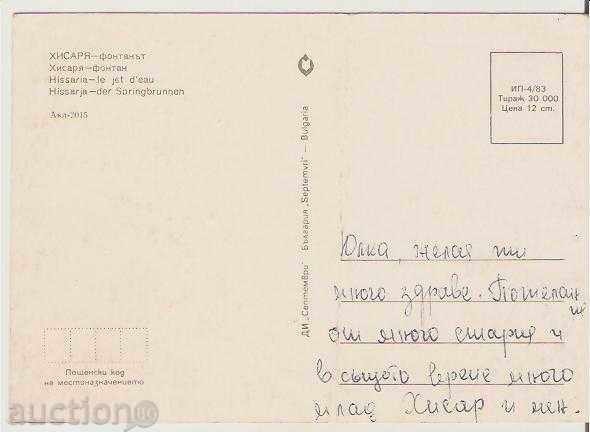 ХИСАРЯ—фонтанът
Хисаря—фонтан
Hissaria—le jet d'eau
Hissarja—der Springbrunnen
Акл-2015
ИП-4/83
Тираж 30 000
Цена 12 ст.
ДИ „Септември" България „Septemvri" — Bulgaria
Юлка, желая ти
много здраве. Пожелан
ия
от много стария и
в същото време много
млад Хисар и мен.
Пощенски код
на местоназначението
auction.BG